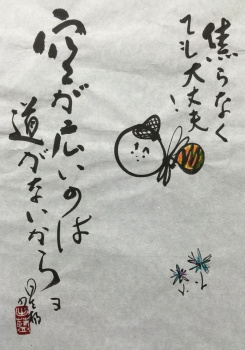 焦らなく
ても大丈夫!
空が広いのは
道がないからョ